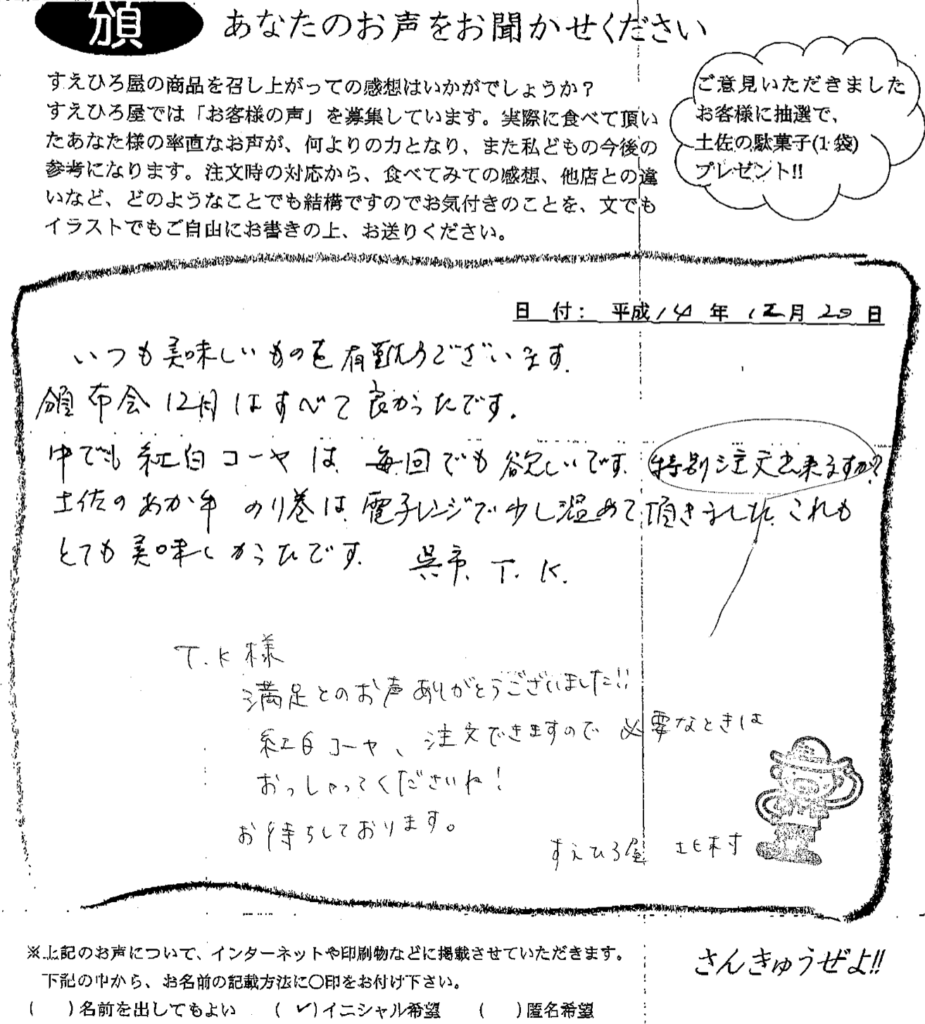 頒 あなたのお声をお聞かせください
すえひろ屋の商品を召し上がっての感想はいかがでしょうか？
すえひろ屋では「お客様の声」を募集しています。実際に食べて頂い
たあなた様の率直なお声が、何よりの力となり、また私どもの今後の
参考になります。注文時の対応から、食べてみての感想、他店との違
いなど、どのようなことでも結構ですのでお気付きのことを、文でも
イラストでもご自由にお書きの上、お送りください。
ご意見いただきました
お客様に抽選で、
土佐の駄菓子(1袋)
プレゼント!!
日 付： 平成14年 12月 20日
いつも美味しいものを有難うございます.
頒布会12月はすべて良かったです.
中でも紅白コーヤは、毎回でも欲しいです. 特別注文出来ますか?
土佐のあか牛のり巻は、電子レンジで少し温めて頂きました. これも
とても美味しかったです. 呉市. T. K.
T.K様
満足とのお声ありがとうございました!!
紅白コーヤ、注文できますので必要なときは
おっしゃってくださいね!
お待ちしております。
すえひろ屋 北村
※上記のお声について、インターネットや印刷物などに掲載させていただきます。
下記の中から、お名前の記載方法に〇印をお付け下さい。
(　)名前を出してもよい　(✓)イニシャル希望　(　)匿名希望
さんきゅうぜよ!!